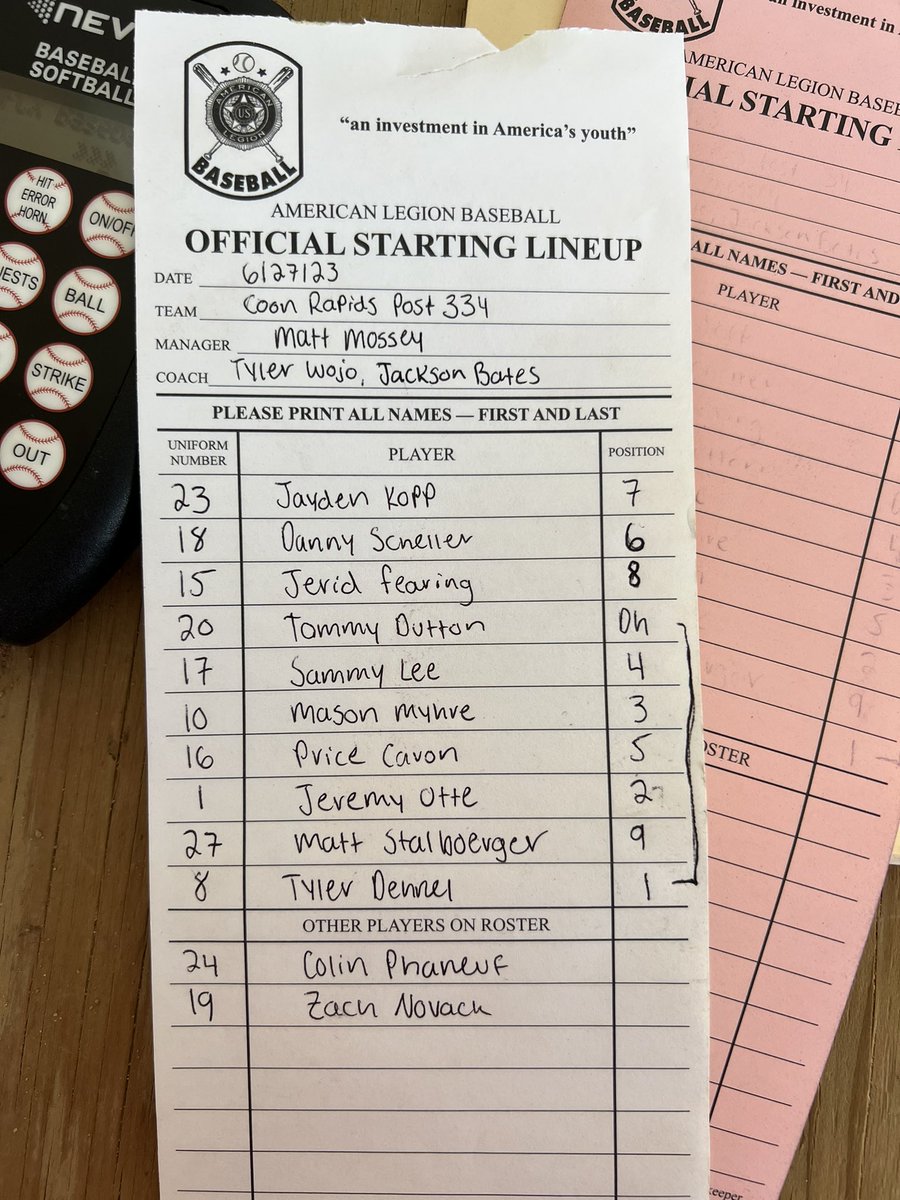 NEV
BASEBAL
SOFTBAL
HIT
ERROR
HORN
ON/OF
ESTS
BALL
STRIKE
OUT
AMERICAN
LEGION
US
BASEBALL
"an investment in America's youth"
AMERICAN LEGION BASEBALL
OFFICIAL STARTING LINEUP
DATE 6/27/23
TEAM Coon Rapids Post 334
MANAGER Matt Mossey
COACH Tyler Wojo, Jackson Bates
PLEASE PRINT ALL NAMES — FIRST AND LAST
UNIFORM NUMBER PLAYER POSITION
23 Jayden Kopp 7
18 Danny Scheller 6
15 Jerid Fearing 8
20 Tommy Dutton Dh
17 Sammy Lee 4
10 Mason Myhre 3
16 Price Cavon 5
1 Jeremy Otte 2
27 Matt Stalboerger 9
8 Tyler Dennel 1
OTHER PLAYERS ON ROSTER
24 Colin Phaneuf
19 Zach Novack
BASEBALL
an investment in
AMERICAN LEGION BASEB
IAL STARTING
ALL NAMES — FIRST AND
PLAYER
OSTER